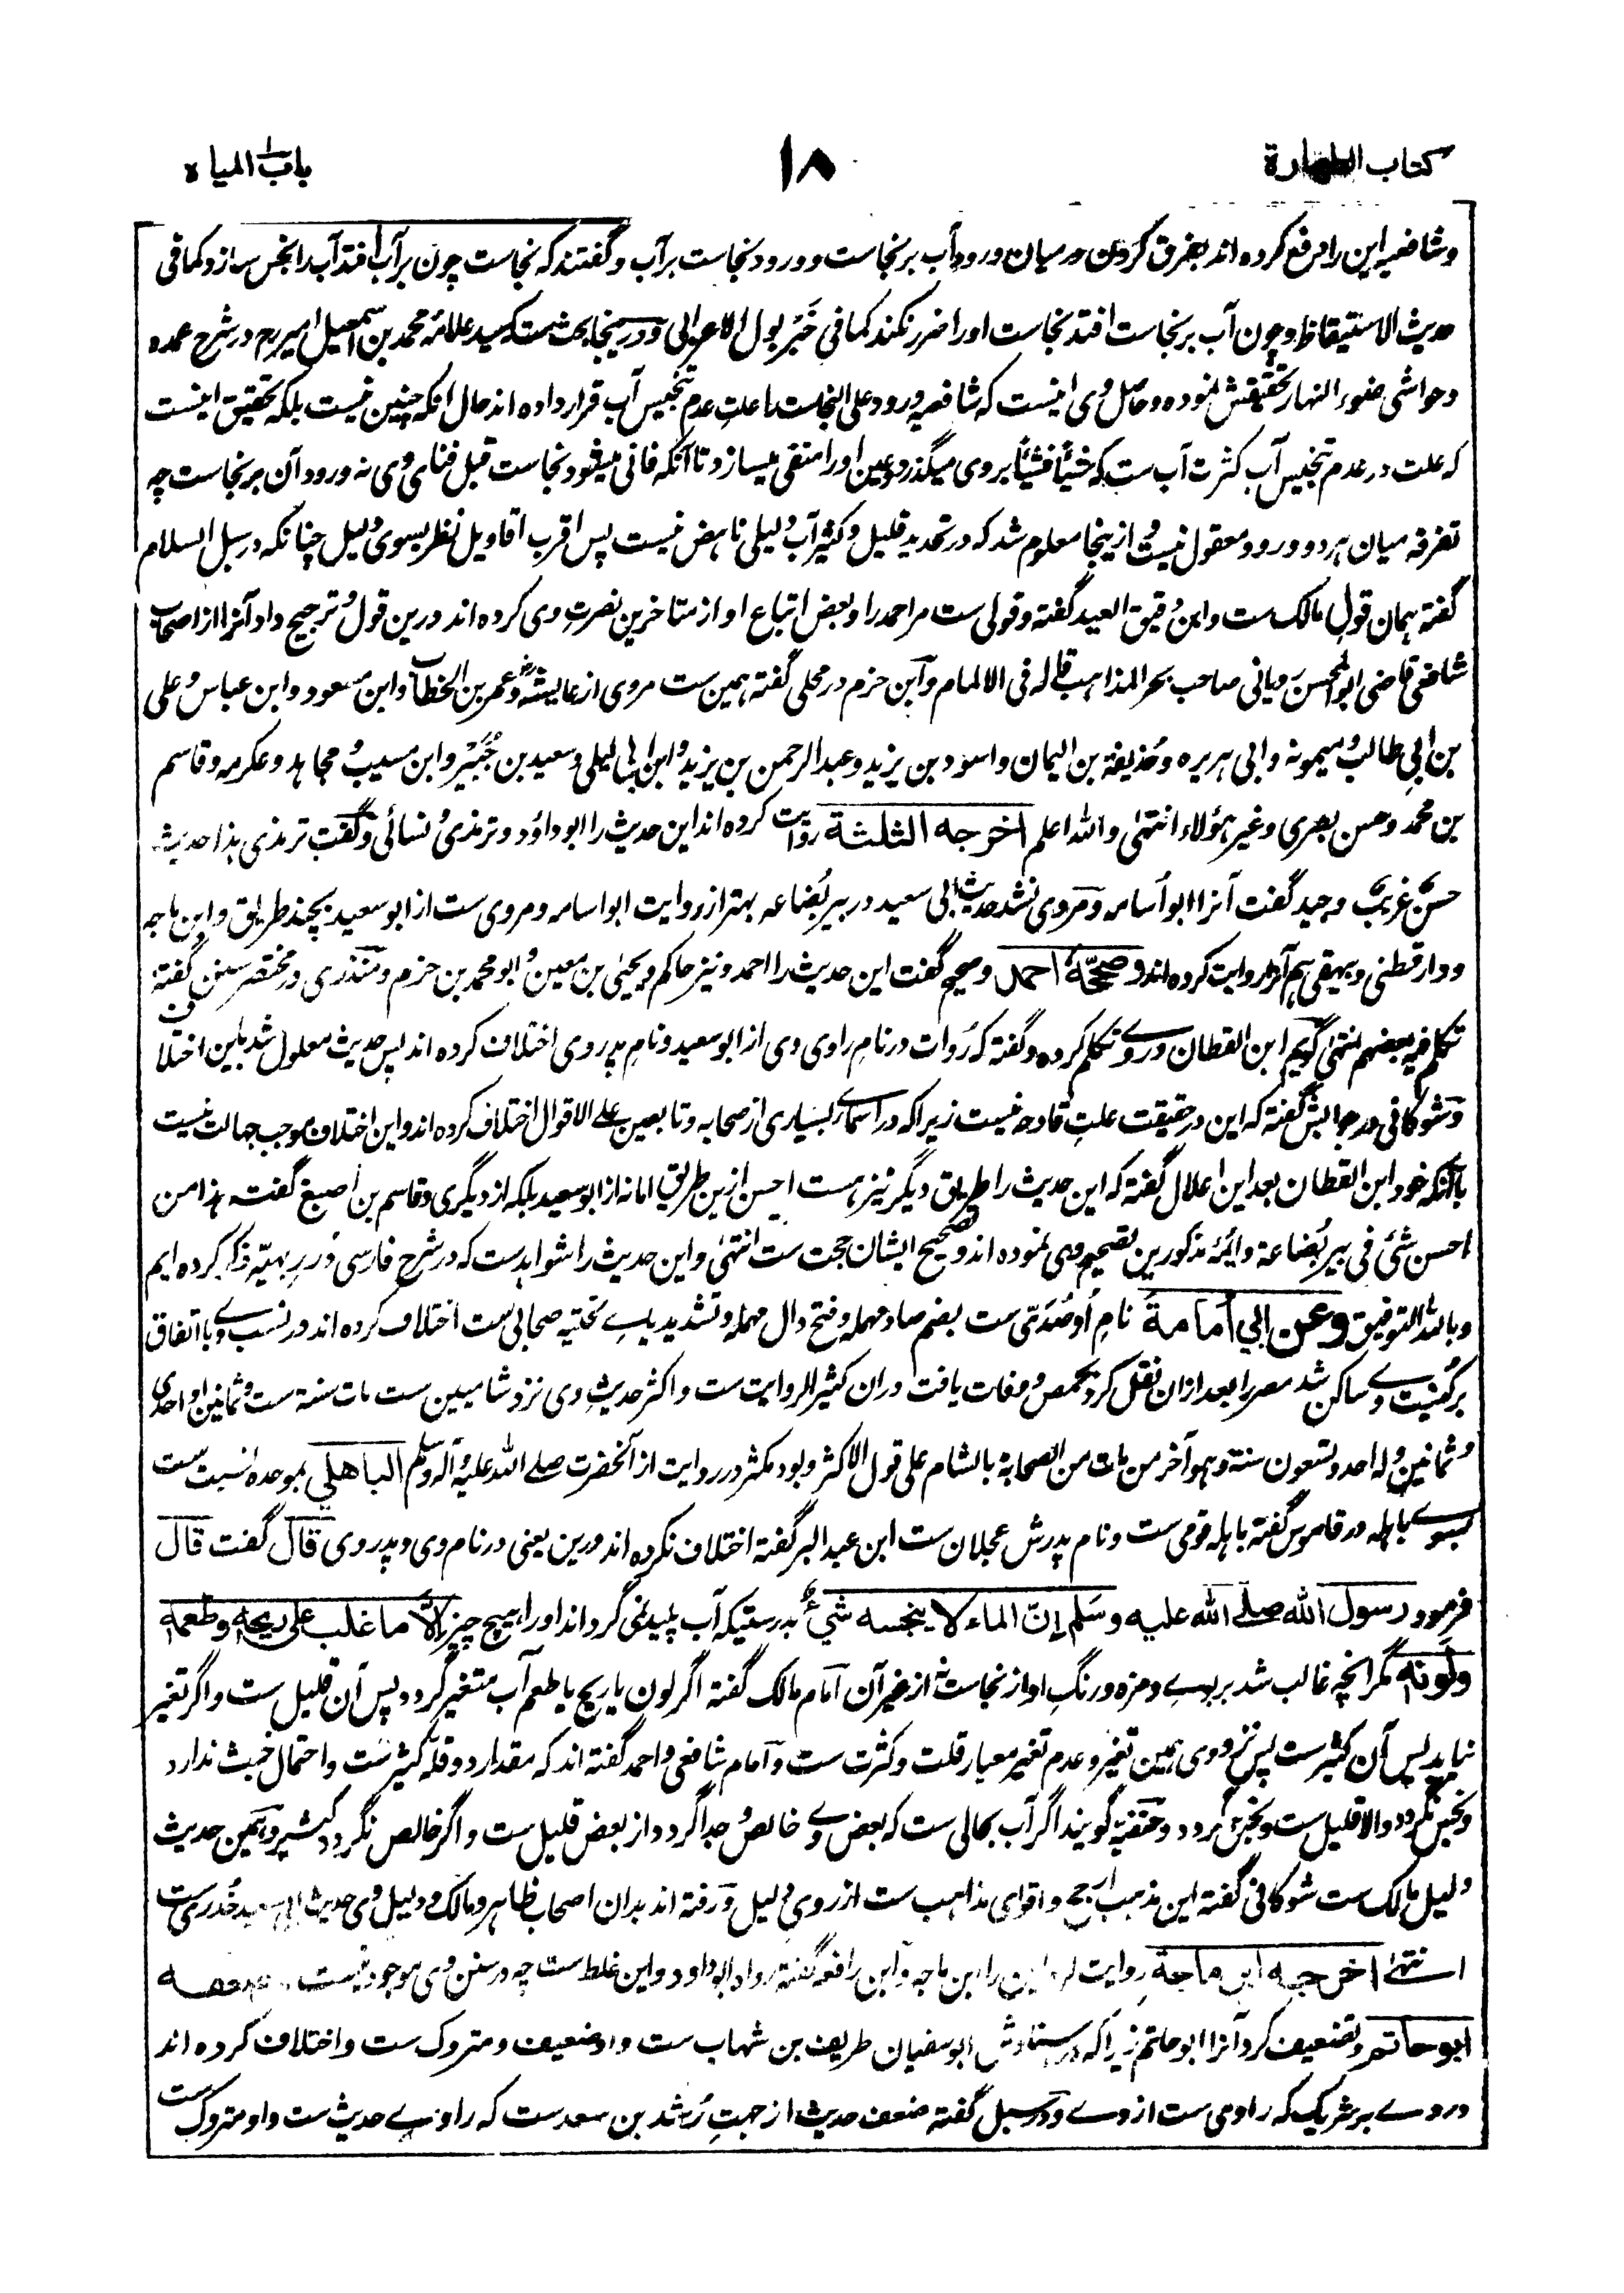 کتاب الطهارة ۱۸ باب المیاه
وشافعیه این را دفع کرده اند بفرق کردن درمیان ورود آب بر نجاست و ورود نجاست بر آب و گفتند که نجاست چون بر آب افتد آب را نجس سازد کما فی
حدیث الاستیقاظ و چون آب بر نجاست افتد نجاست او را ضرر نکند کما فی خَبَر بول الاعرابی و درینجا بحث ست که سید علامه محمد بن اسمعیل امیر رح در شرح عمده
و حواشی ضوء النهار تحقیقش نموده و حاصل وی اینست که شافعیه ورود علی النجاست را علتِ عدم تنجیس آب قرار داده اند حال آنکه چنین نیست بلکه تحقیق اینست
که علت در عدم تنجیس آب کثرت آب ست که شیئاً فشیئاً بر وی میگذرد و عین او را متقی میسازد تا آنکه فانی میشود نجاست قبل فنای وی نه ورود آن بر نجاست چه
تفرقه میان هر دو ورود معقول نیست و ازینجا معلوم شد که در تحدید قلیل و کثیر آب دلیلی ناهض نیست پس اقرب اقاویل نظر بسوی دلیل چنانکه در سبل السلام
گفته همان قول مالک ست و ابن دقیق العید گفته و قولی ست مر احمد را و بعض اتباع او از متاخرین نصرتِ وی کرده اند و درین قول و ترجیح داد آنرا از اصحاب
شافعی قاضی ابو المحسن رویانی صاحب بحر المذاهب قاله فی الالمام و ابن حزم در محلی گفته همین ست مروی از عایشه رض و عمر بن الخطاب و ابن مسعود و ابن عباس و علی
بن ابی طالب و میمونه و ابی هریره و حُذیفه بن الیمان و اسود بن یزید و عبد الرحمن بن یزید و ابن ابی لیلی و سعید بن جُبَیْر و ابن مسیب و مجاهد و عکرمه و قاسم
بن محمد و حسن بصری و غیر هؤلاء انتهی والله اعلم اخرجه الثلثة روایت کرده اند این حدیث را ابوداؤد و ترمذی و نسائی و گفت ترمذی هذا حدیث
حسنٌ غریبٌ و جید گفت آنرا ابو اُسامه و مروی نشد حدیث ابی سعید در بیر بُضاعه بهتر از روایت ابو اسامه و مروی ست از ابو سعید بچند طریق و ابن ماجه
و دارقطنی و بیهقی هم آنرا روایت کرده اند و صحّحهٗ احمد و صحیح گفت این حدیث را احمد و نیز حاکم و یحیٰی بن معین و ابو محمد بن حزم و منذری در مختصر سنن گفته
تکلم فیه بعضهم انتهی گویم ابن القطان در وے تکلم کرده و گفته که رُوات در نامِ راوی وی از ابو سعید و نامِ پدر وی اختلاف کرده اند پس حدیث معلول شد باین اختلاف
و شوکانی در جوابش گفته که این در حقیقت علتِ قادحه نیست زیرا که در اسماے بسیاری از صحابه و تابعین علے الاقوال اختلاف کرده اند و این اختلاف موجب جهالت نیست
باآنکه خود ابن القطان بعد این اعلال گفته که این حدیث را طریق دیگر نیز هست احسن ازین طریق اما نه از ابو سعید بلکه از دیگری و قاسم بن اصبغ گفته هذا من
احسن شئ فی بیر بُضاعة و ایمۀ مذکورین تصحیح وی نموده اند و تصحیح ایشان حجت ست انتهٰی و این حدیث را شواهدست که در شرح فارسی دُرر بهیّه ذکر کرده ایم
و بالله التوفیق وعن ابي اُمامةَ نامِ اُو صُدَیّ ست بضم صاد مهمله و فتح دال مهمله و تشدید یاے تحتیه صحابی ست اختلاف کرده اند در نسب وے با اتفاق
بر کُنیت وے ساکن شد مصر را بعد ازان نقل کرد بحمص و وفات یافت دران کثیر الروایت ست و اکثر حدیثِ وی نزد شامیین ست مات سنة ست و ثمانین او احدی
و ثمانین و له احد و تسعون سنة و هو آخر من مات من الصحابة بالشام علی قول الاکثر و بود مکثر در روایت از آنحضرت صلے الله علیه و آله وسلم الباهلي بموحده نسبت ست
بسوے باهله در قاموس گفته باهله قومی ست و نام پدرش عجلان ست ابن عبد البر گفته اختلاف نکرده اند درین یعنی در نام وی و پدر وی قال گفت قال
فرمود رسول الله صلے الله علیه وسلم إنّ الماء لا ینجسه شيءٌ بدرستیکه آب پلید نمی گرداند او را هیچ چیز إلّا ما غلب علی ریحه وطعمه
ولونه مگر انچه غالب شد بر بوے و مزه و رنگِ او از نجاست نه از غیر آن امام مالک گفته اگر لون یا ریح یا طعم آب متغیر گردد پس آن قلیل ست و اگر تغیر
نیابد پس آن کثیر ست پس نزد وی همین تغیر و عدم تغیر معیار قلت و کثرت ست و امام شافعی و احمد گفته اند که مقدار دو قلّه کثیر ست و احتمال خبث ندارد
و نجس نگردد و الا قلیل ست و نجس گردد و حنفیه گویند اگر آب بحالی ست که بعض وے خالص و جدا گردد از بعض قلیل ست و اگر خالص نگردد کثیر و همین حدیث
دلیل مالک ست شوکانی گفته این مذهب ارجح و اقوای مذاهب ست از روی دلیل و رفته اند بدان اصحاب ظاهر و مالک و دلیل وی حدیث ابی سعید خُدری ست
انتهٰے اخرجه ابن ماجة روایت کرد این را ابن ماجه و ابن رافعه گفته رواه ابو داود و این غلط ست چه در سنن وی موجود نیست وضعفه
ابو حاتم و تضعیف کرد آنرا ابو حاتم زیرا که در سنادش ابو سفیان طریف بن شهاب ست و او ضعیف و متروک ست و اختلاف کرده اند
در وے بر شریک که راوی ست از وے و در سبل گفته ضعف حدیث از جهتِ رُشد بن سعد ست که راوے حدیث ست و او متروک ست